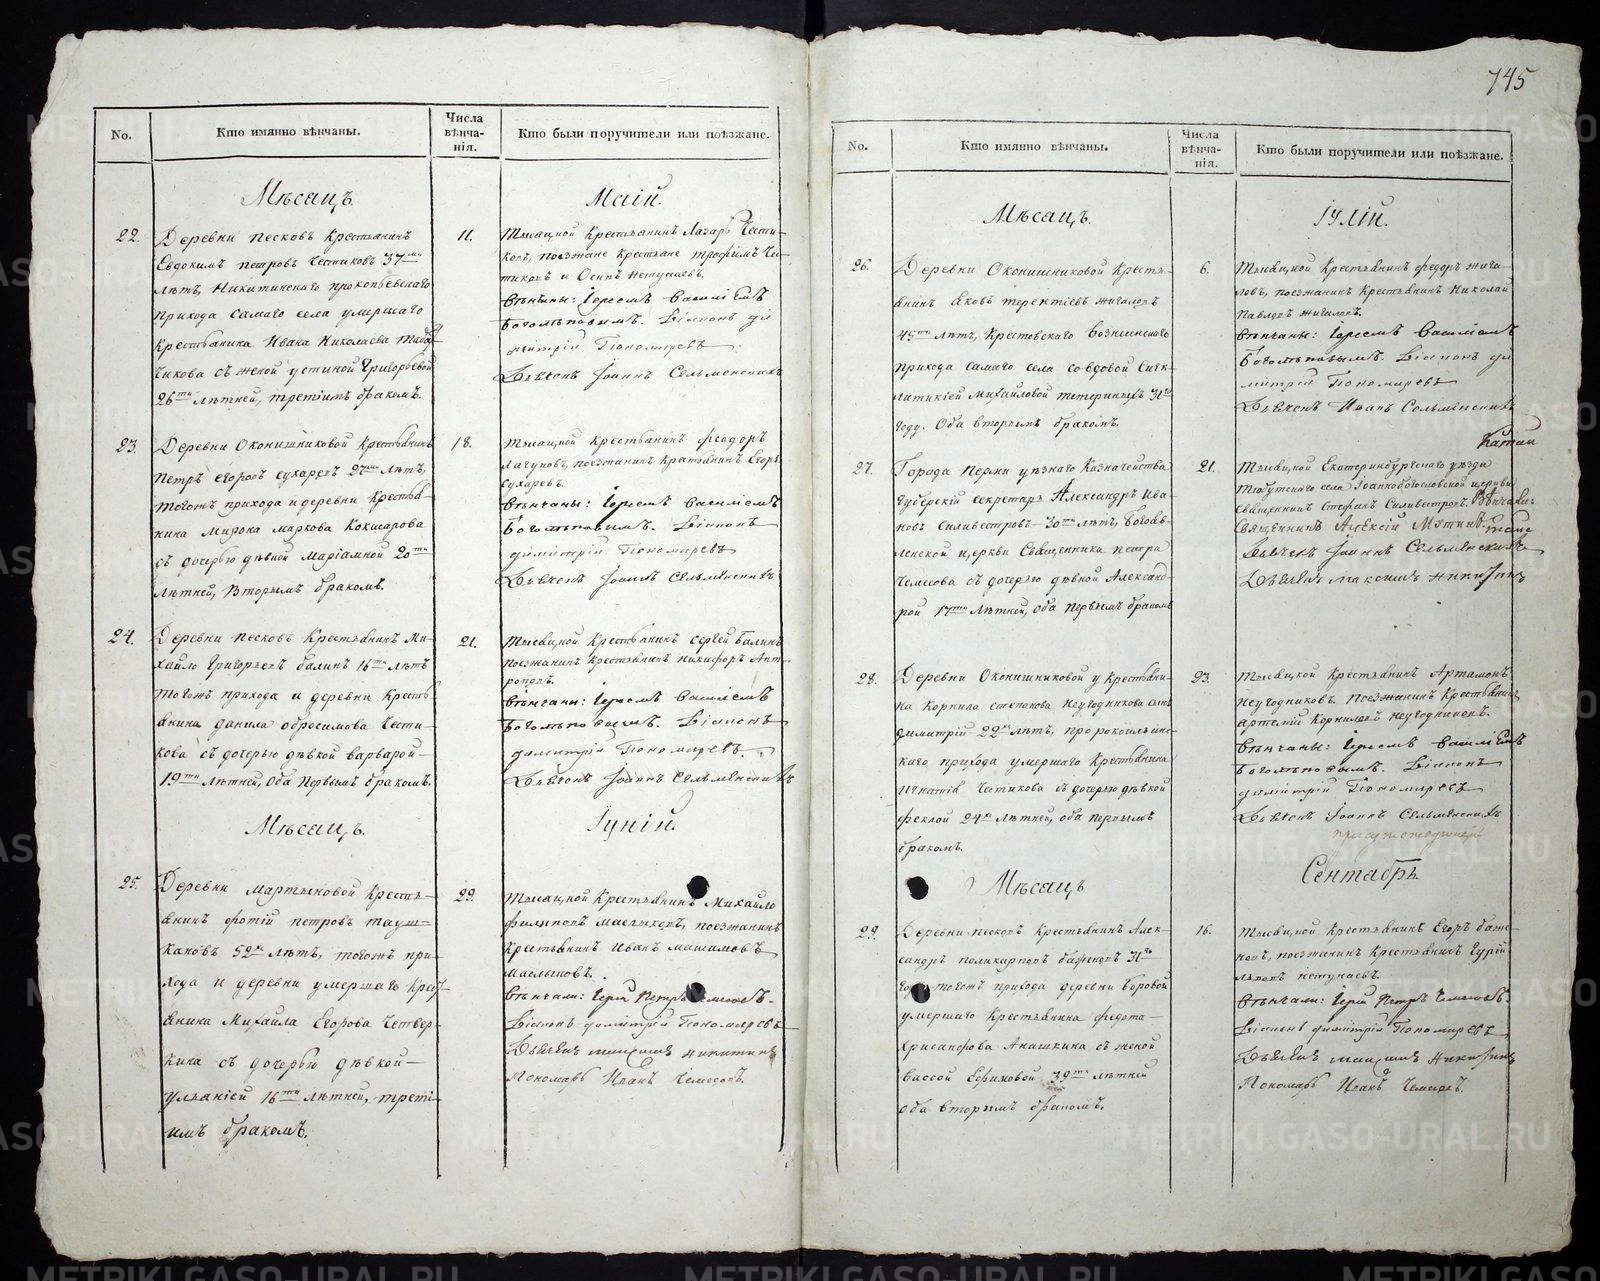 745
No.
Кто имянно вѣнчаны.
Числа вѣнча-нія.
Кто были поручители или поѣзжане.
Мѣсацъ
Маій.
22.
Деревни песковъ Крестьанинъ
Евдокимъ петровъ Чистиковъ 37ми
лѣтъ, Никитинскаго прокопьевскаго
прихода самаго села умершаго
Крестьанина Ивана Николаева
чикова съ женой устиной Григорьевой
26ти лѣтней, третіимъ бракомъ.
11.
Тысацкой Крестьанинъ Лазарь Чисти-
ковъ, поезжане Крестьане трофимъ Чис-
тиковъ и Осипъ
Вѣнчаны: Іереемъ Василіемъ
Боголѣповымъ. Діаконъ ди
митрій Пономаревъ
Дьячекъ Іоаннъ Сельменскихъ
23.
Деревни Оконишниковой Крестьанинъ
Петръ егоровъ сухаревъ 27ми лѣтъ,
тогожъ прихода и деревни Крестьа-
нина мирона маркова Кокшарова
съ дочерью дѣвкой Маріамной 20ти
лѣтней, Вторымъ бракомъ.
18.
Тысацкой крестьанинъ феодоръ
Лагуновъ, поезжанинъ Крестьанинъ Егоръ
Сухаревъ.
Вѣнчаны: Іереемъ Василіемъ
Боголѣповымъ. Діаконъ
димитрій Пономаревъ
Дьячекъ Іоаннъ Сельменскихъ
24.
Деревни песковъ Крестьанинъ Ми-
хайло Григорьевъ балинъ 16ти лѣтъ
тогожъ прихода и деревни Кресть-
анина данила абросимова Чисти-
кова съ дочерью дѣвкой варварой
19ти лѣтней, Оба Первымъ бракомъ.
21.
Тысацкой Крестьанинъ сергей балинъ
поезжанинъ Крестьанинъ никифоръ Ант-
роповъ.
Вѣнчаны: Іереемъ Василіемъ
Боголѣповымъ. Діаконъ
димитрій Пономаревъ
Дьячекъ Іоаннъ Сельменскихъ
Мѣсацъ.
Іуній.
25.
Деревни Мартыновой Кресть-
анинъ фотій петровъ тауш-
кановъ 52хъ лѣтъ, тогожъ при-
хода и деревни умершаго Крест-
анина Михаила Егорова Четвер-
кина съ дочерью дѣвкой
уліаніей 16ти лѣтней, трети-
имъ бракомъ.
29.
Тысацкой Крестьанинъ Михайло
филиповъ маслыковъ, поезжанинъ
Крестьанинъ Иванъ
маслыковъ.
Вѣнчали: Іерей Петръ Чемесовъ.
Діаконъ димитрій Пономаревъ
Дьячекъ максимъ никитинъ
Пономарь Иванъ Чемесовъ.
No.
Кто имянно вѣнчаны.
Числа вѣнча-нія.
Кто были поручители или поѣзжане.
Мѣсацъ.
Іулій.
26.
Деревни Оконишниковой Кресть-
анинъ Яковъ терентіевъ жигаловъ
45ти лѣтъ, Крестовскаго Вознесенскаго
прихода самаго села со вдовой Синк-
литикіей михайловой 31го
году. Оба вторымъ бракомъ.
6.
Тысацкой Крестьанинъ федоръ жига-
ловъ, поезжанинъ Крестьанинъ Николай
Павловъ жигаловъ.
Вѣнчаны: Іереемъ Василіемъ
Боголѣповымъ. Діаконъ ди
митрій Пономаревъ
Дьячекъ Иванъ Сельменскихъ
27.
Города Перми уѣзнаго Казначейства
Губерскій секретарь Александръ Ива-
новъ Силивестровъ 30ти лѣтъ, Богояв-
ленской церкви Священника петра
Чемесова съ дочерью дѣвкой Александ-
рой 17ти лѣтней, оба первымъ бракомъ
21.
Тысацкой Екатеринбургскаго уѣзда
села Іоаннобогословской церкви
Священникъ Стефанъ Силивестровъ. Вѣнчали:
Священникъ Алексій
Дьячекъ Іоаннъ Сельменскихъ
Дьячекъ максимъ никитинъ
28.
Деревни Оконишниковой у Крестьани-
на Корнила степанова неугодникова сынъ
димитрій 22хъ лѣтъ, пророкоильинс-
каго прихода умершаго Крестьанина
Игнатія Чистикова съ дочерью дѣвкой
феклой 24хъ лѣтней, оба первымъ
бракомъ.
23.
Тысацкой Крестьанинъ Артамонъ
неугодниковъ. Поезжанинъ Крестьанинъ
артемій Корниловъ неугодниковъ.
Вѣнчаны: Іереемъ Василіемъ
Боголѣповымъ. Діаконъ
димитрій Пономаревъ
Дьячекъ Іоаннъ Сельменскихъ
Мѣсацъ
Сентабрь
29.
Деревни песковъ Крестьанинъ Алек-
сандръ поликарповъ баженовъ 31го
году тогожъ прихода деревни боровой
умершаго Крестьанина федота
Хрисанфова Анашкина съ женой
Вассой Ефимовой 39ти лѣтней
оба вторымъ бракомъ.
16.
Тысацкой Крестьанинъ Егоръ баже-
новъ, поезжанинъ Крестьанинъ Гурій
Вѣнчали: Іерей Петръ Чемесовъ.
Діаконъ димитрій Пономаревъ
Дьячекъ максимъ никитинъ
Пономарь Иванъ Чемесовъ.
METRIKI.GASO-URAL.RU